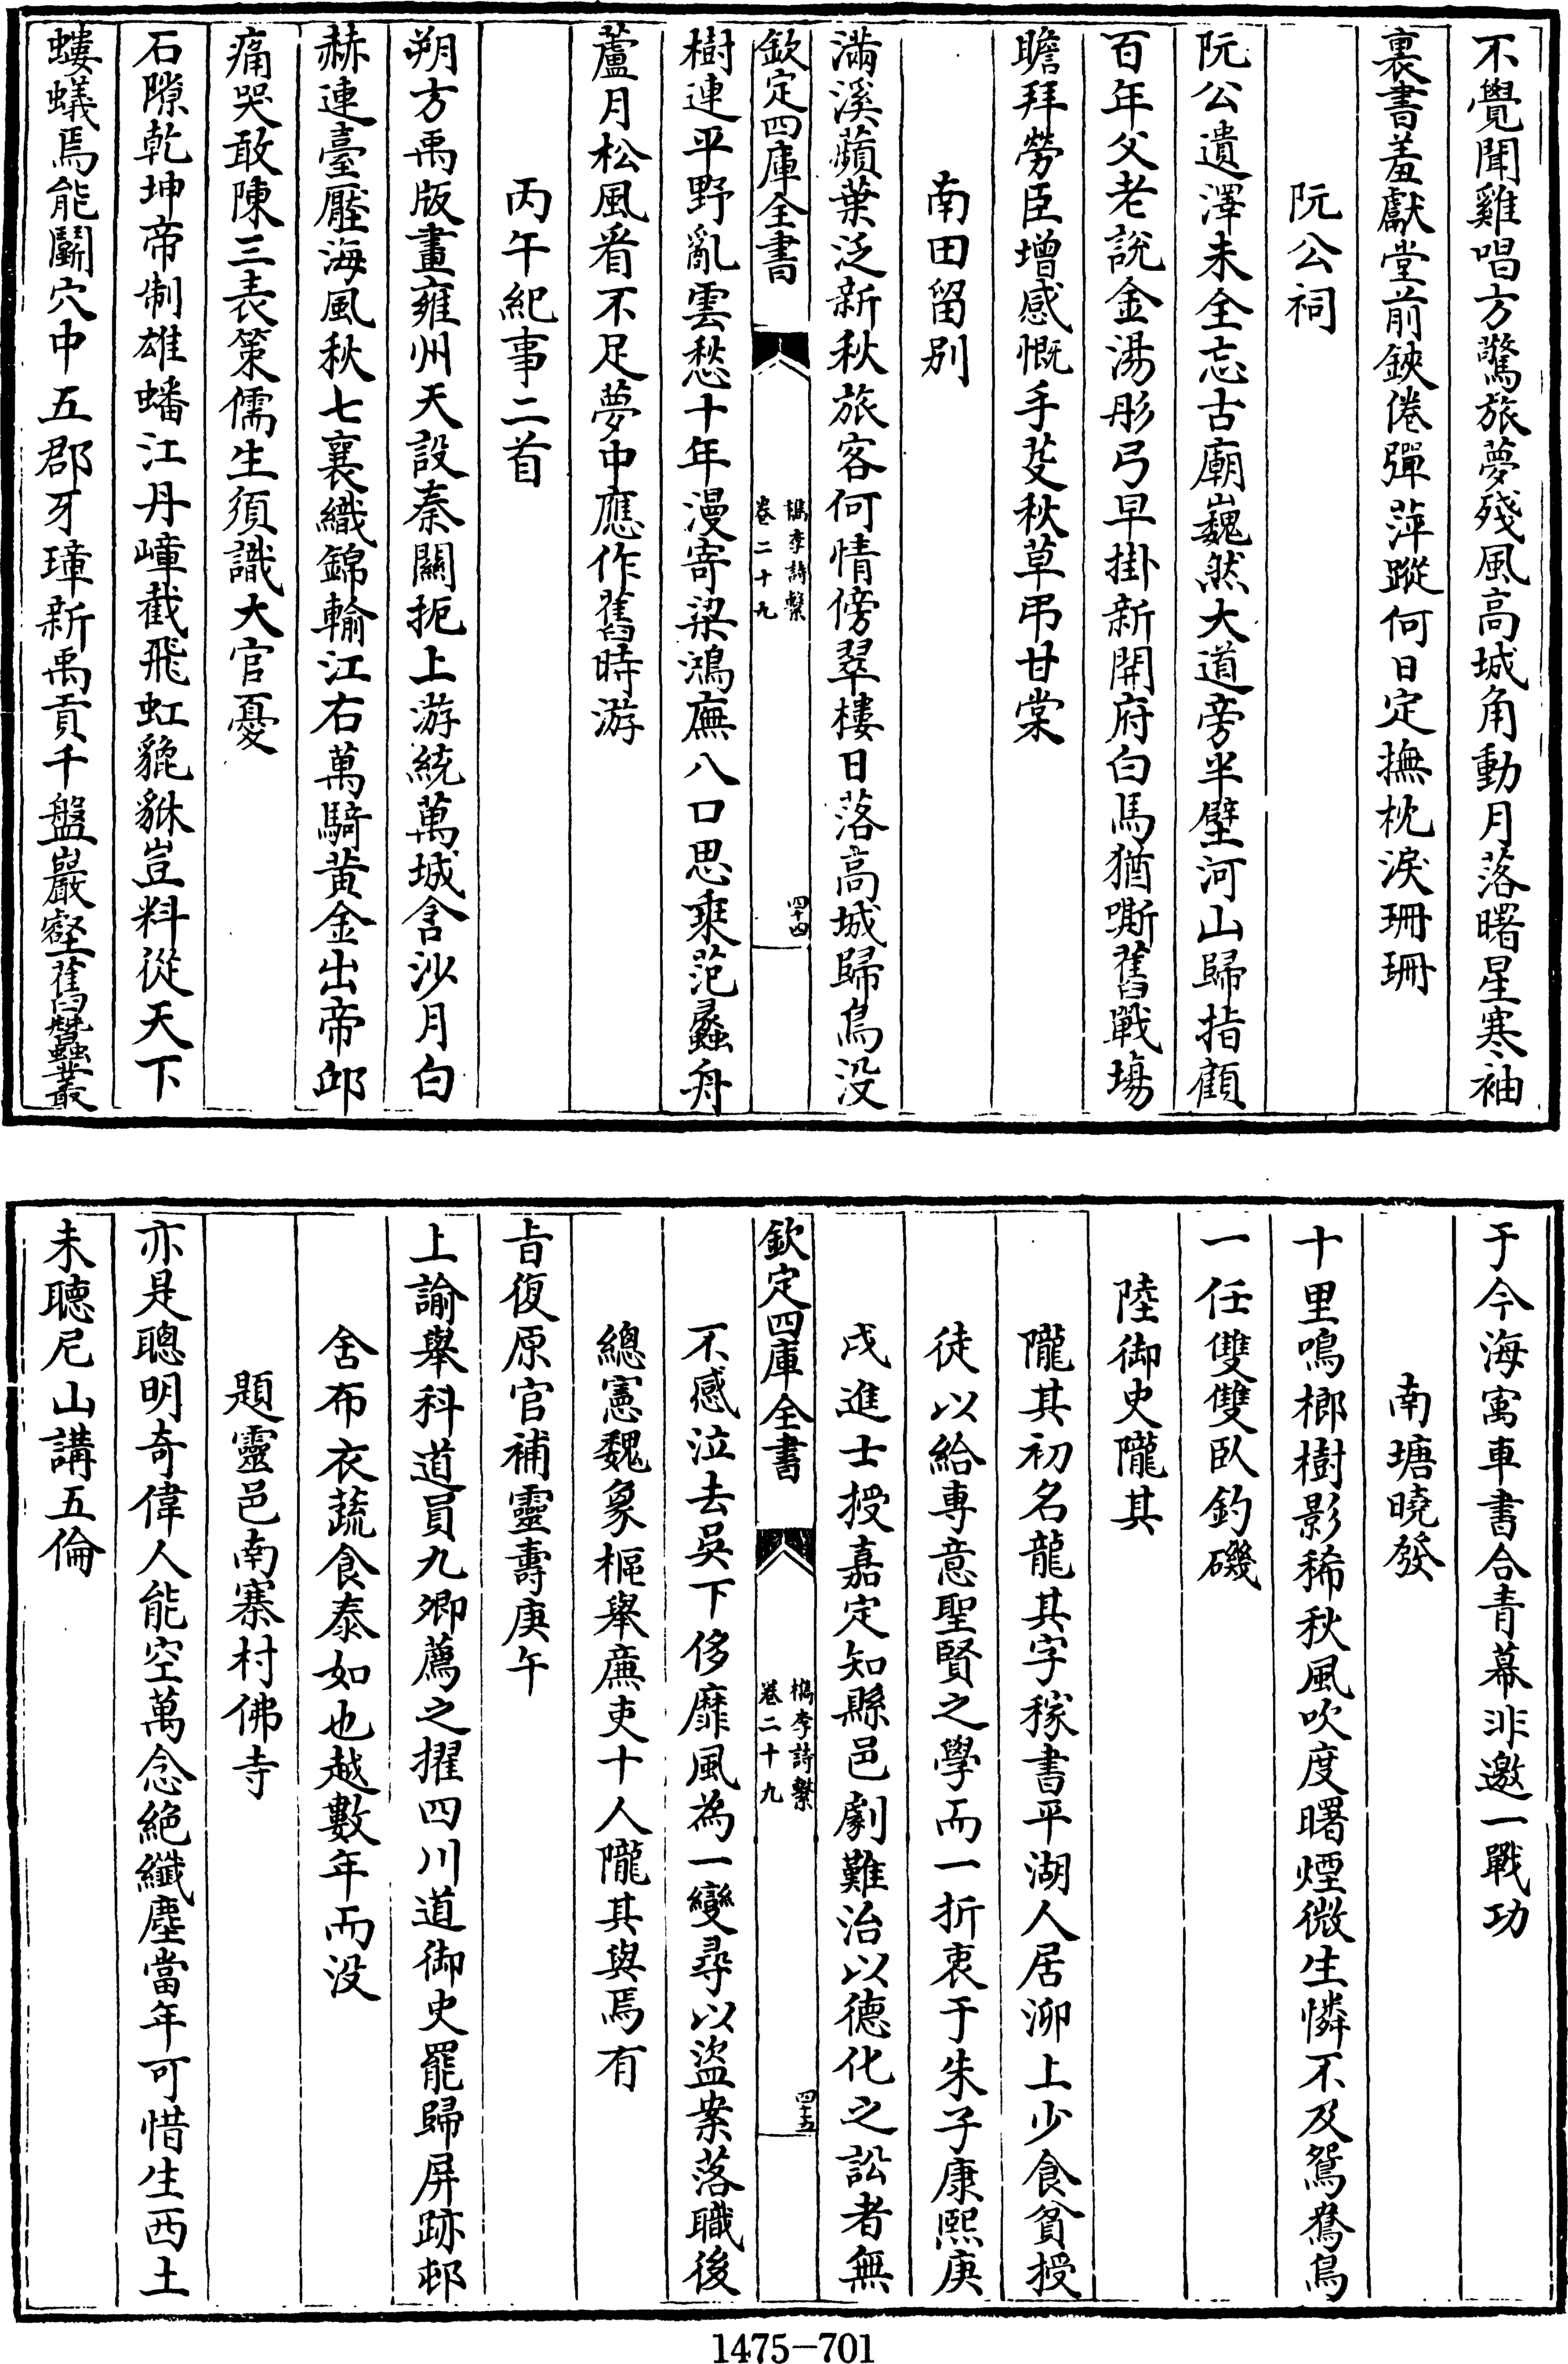 不覺聞雞唱方驚旅夢殘風高城角動月落曙星寒袖
裏書羞獻堂前鋏倦彈萍蹤何日定撫枕淚珊珊
阮公祠
阮公遺澤未全忘古廟巍然大道旁半壁河山歸指顧
百年父老說金湯彤弓早掛新開府白馬猶嘶舊戰場
瞻拜勞臣增感慨手芟秋草弔甘棠
南田留别
滿溪蘋葉泛新秋旅客何情傍翠樓日落高城歸鳥没
欽定四庫全書
檇李詩繫
卷二十九
四十四
樹連平野亂雲愁十年漫寄梁鴻廡八口思乘范蠡舟
蘆月松風看不足夢中應作舊時游
丙午紀事二首
朔方禹版畫雍州天設秦關扼上游統萬城含沙月白
赫連臺壓海風秋七襄織錦輸江右萬騎黄金出帝邱
痛哭敢陳三表策儒生須識大官憂
石隙乾坤帝制雄蟠江丹嶂截飛虹貔貅豈料從天下
螻蟻焉能鬭穴中五郡牙璋新禹貢千盤巖壑舊蠶叢
于今海寓車書合青幕非邀一戰功
南塘曉發
十里鳴榔樹影稀秋風吹度曙煙微生憐不及鴛鴦鳥
一任雙雙臥釣磯
陸御史隴其
隴其初名龍其字稼書平湖人居泖上少食貧授
徒以給専意聖賢之學而一折衷于朱子康熙庚
戌進士授嘉定知縣邑劇難治以德化之訟者無
欽定四庫全書
檇李詩繫
卷二十九
四十五
不感泣去吳下侈靡風為一變尋以盜案落職後
總憲魏象樞舉亷吏十人隴其與焉有
旨復原官補靈壽庚午
上諭舉科道員九卿薦之擢四川道御史罷歸屏跡邨
舍布衣蔬食泰如也越數年而没
題靈邑南寨村佛寺
亦是聰明奇偉人能空萬念絶纖塵當年可惜生西土
未聴尼山講五倫
1475-701